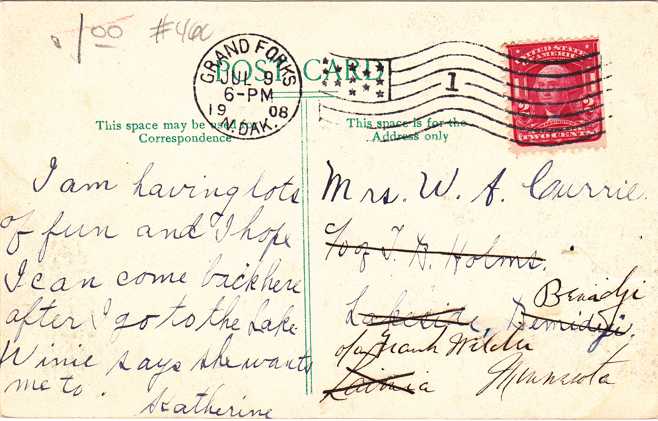 1.00 #460
POST CARD
GRAND FORKS
JUL 9
6-PM
1908
N. DAK.
1
UNITED STATES
AMERICA
2 2
TWO CENTS
This space may be used for
Correspondence
This space is for the
Address only
I am having lots
of fun and I hope
I can come back here
after I go to the Lake
Winie says she wants
me to.
Katherine
Mrs. W. A. Currie
c/o of T. B. Holms.
Bemidji
Lakeside, Bemidji.
c/o Frank Welch
Minnesota